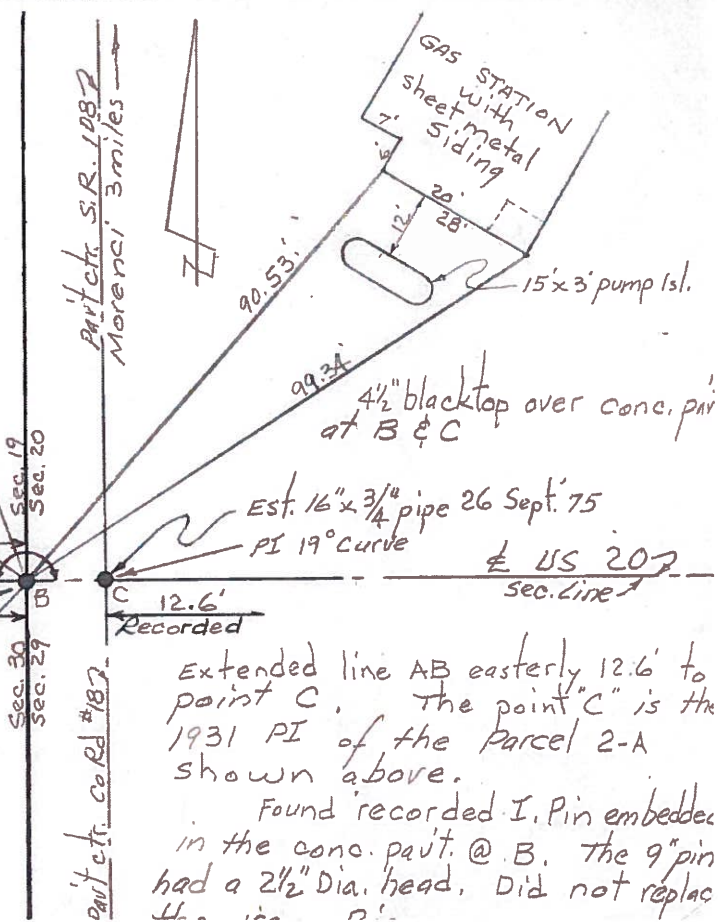 GAS STATION
with
sheet metal
siding
7'
5'
20'
28'
12'
15'x3' pump Isl.
Pav't ctr. S.R. 108
Morenci 3 miles
N
90.53'
99.34'
4½" blacktop over conc. pav
at B & C
Sec. 19
Sec. 20
Est. 16"x 3/4" pipe 26 Sept. '75
PI 19° Curve
℄ US 20
Sec. Line
B
C
12.6'
Recorded
Sec. 30
Sec. 29
Pav't ctr. Co Rd #18
Extended line AB easterly 12.6' to
point C. The point "C" is the
1931 PI of the Parcel 2-A
shown above.
Found recorded I. Pin embedded
in the conc. pav't. @ B. The 9" pin
had a 2½" Dia. head. Did not replac